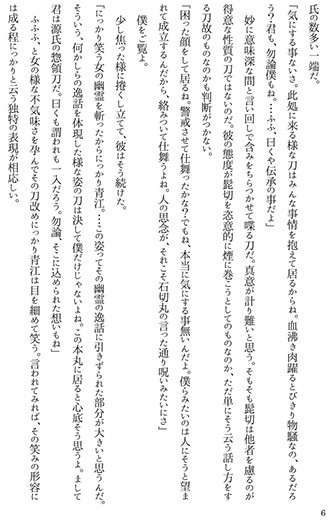 氏の数多い一端だ。
「気にする事ないさ。此処に来る様な刀はみんな事情を抱えて居るからね。血沸き肉躍るとびきり物騒なの、あるだろ
う？君も、勿論僕もね。…ふふ、曰くや伝承の事だよ」
　妙に意味深な間と言い回しで含みをちらつかせて喋る刀だ。真意が計り難いと思う。そもそも髭切は他者を慮るのが
得意な性質の刀ではないのだ。彼の態度が髭切を恣意的に煙に巻こうとしてのものなのか、ただ単にそう云う話し方をす
る刀故のものなのかも判断がつかない。
「困った顔をして居るね。警戒させて仕舞ったかな？でもね、本当に気にする事無いんだよ。僕らみたいのは人にそうと望ま
れて成立するんだから、絡みついて仕舞うよね。人の思念が、それこそ石切丸の言った通り呪いみたいにさ」
　少し焦った様に捲くし立てて、彼はそう続けた。
　僕をご覧よ。
「にっかり笑う女の幽霊を斬ったからにっかり青江。…この姿ってその幽霊の逸話に引きずられた部分が大きいと思うんだ。
そういう、何かしらの逸話を体現した様な姿の刀は決して僕だけじゃないよね。この本丸に居ると心底そう思うよ。まして
君は源氏の惣領刀だ。曰くも謂われも一入だろう。勿論、そこに込められた想いもね」
　ふふふ、と女の様な不気味さを孕んでその刀改めにっかり青江は目を細めて笑う。言われてみれば、その笑みの形容に
は成る程にっかりと云う独特の表現が相応しい。
6